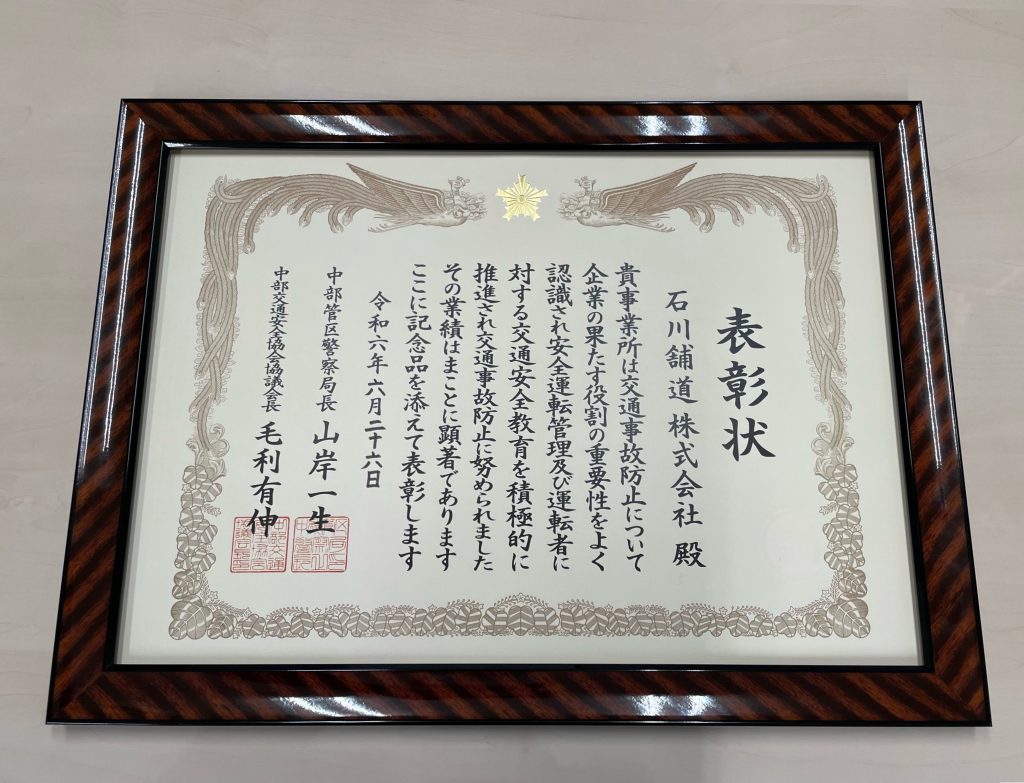 表彰状
石川舗道株式会社 殿
貴事業所は交通事故防止について
企業の果たす役割の重要性をよく
認識され安全運転管理及び運転者に
対する交通安全教育を積極的に
推進され交通事故防止に努められました
その業績はまことに顕著であります
ここに記念品を添えて表彰します
令和六年六月二十六日
中部管区警察局長 山岸一生
中部交通安全協会協議会長 毛利有伸